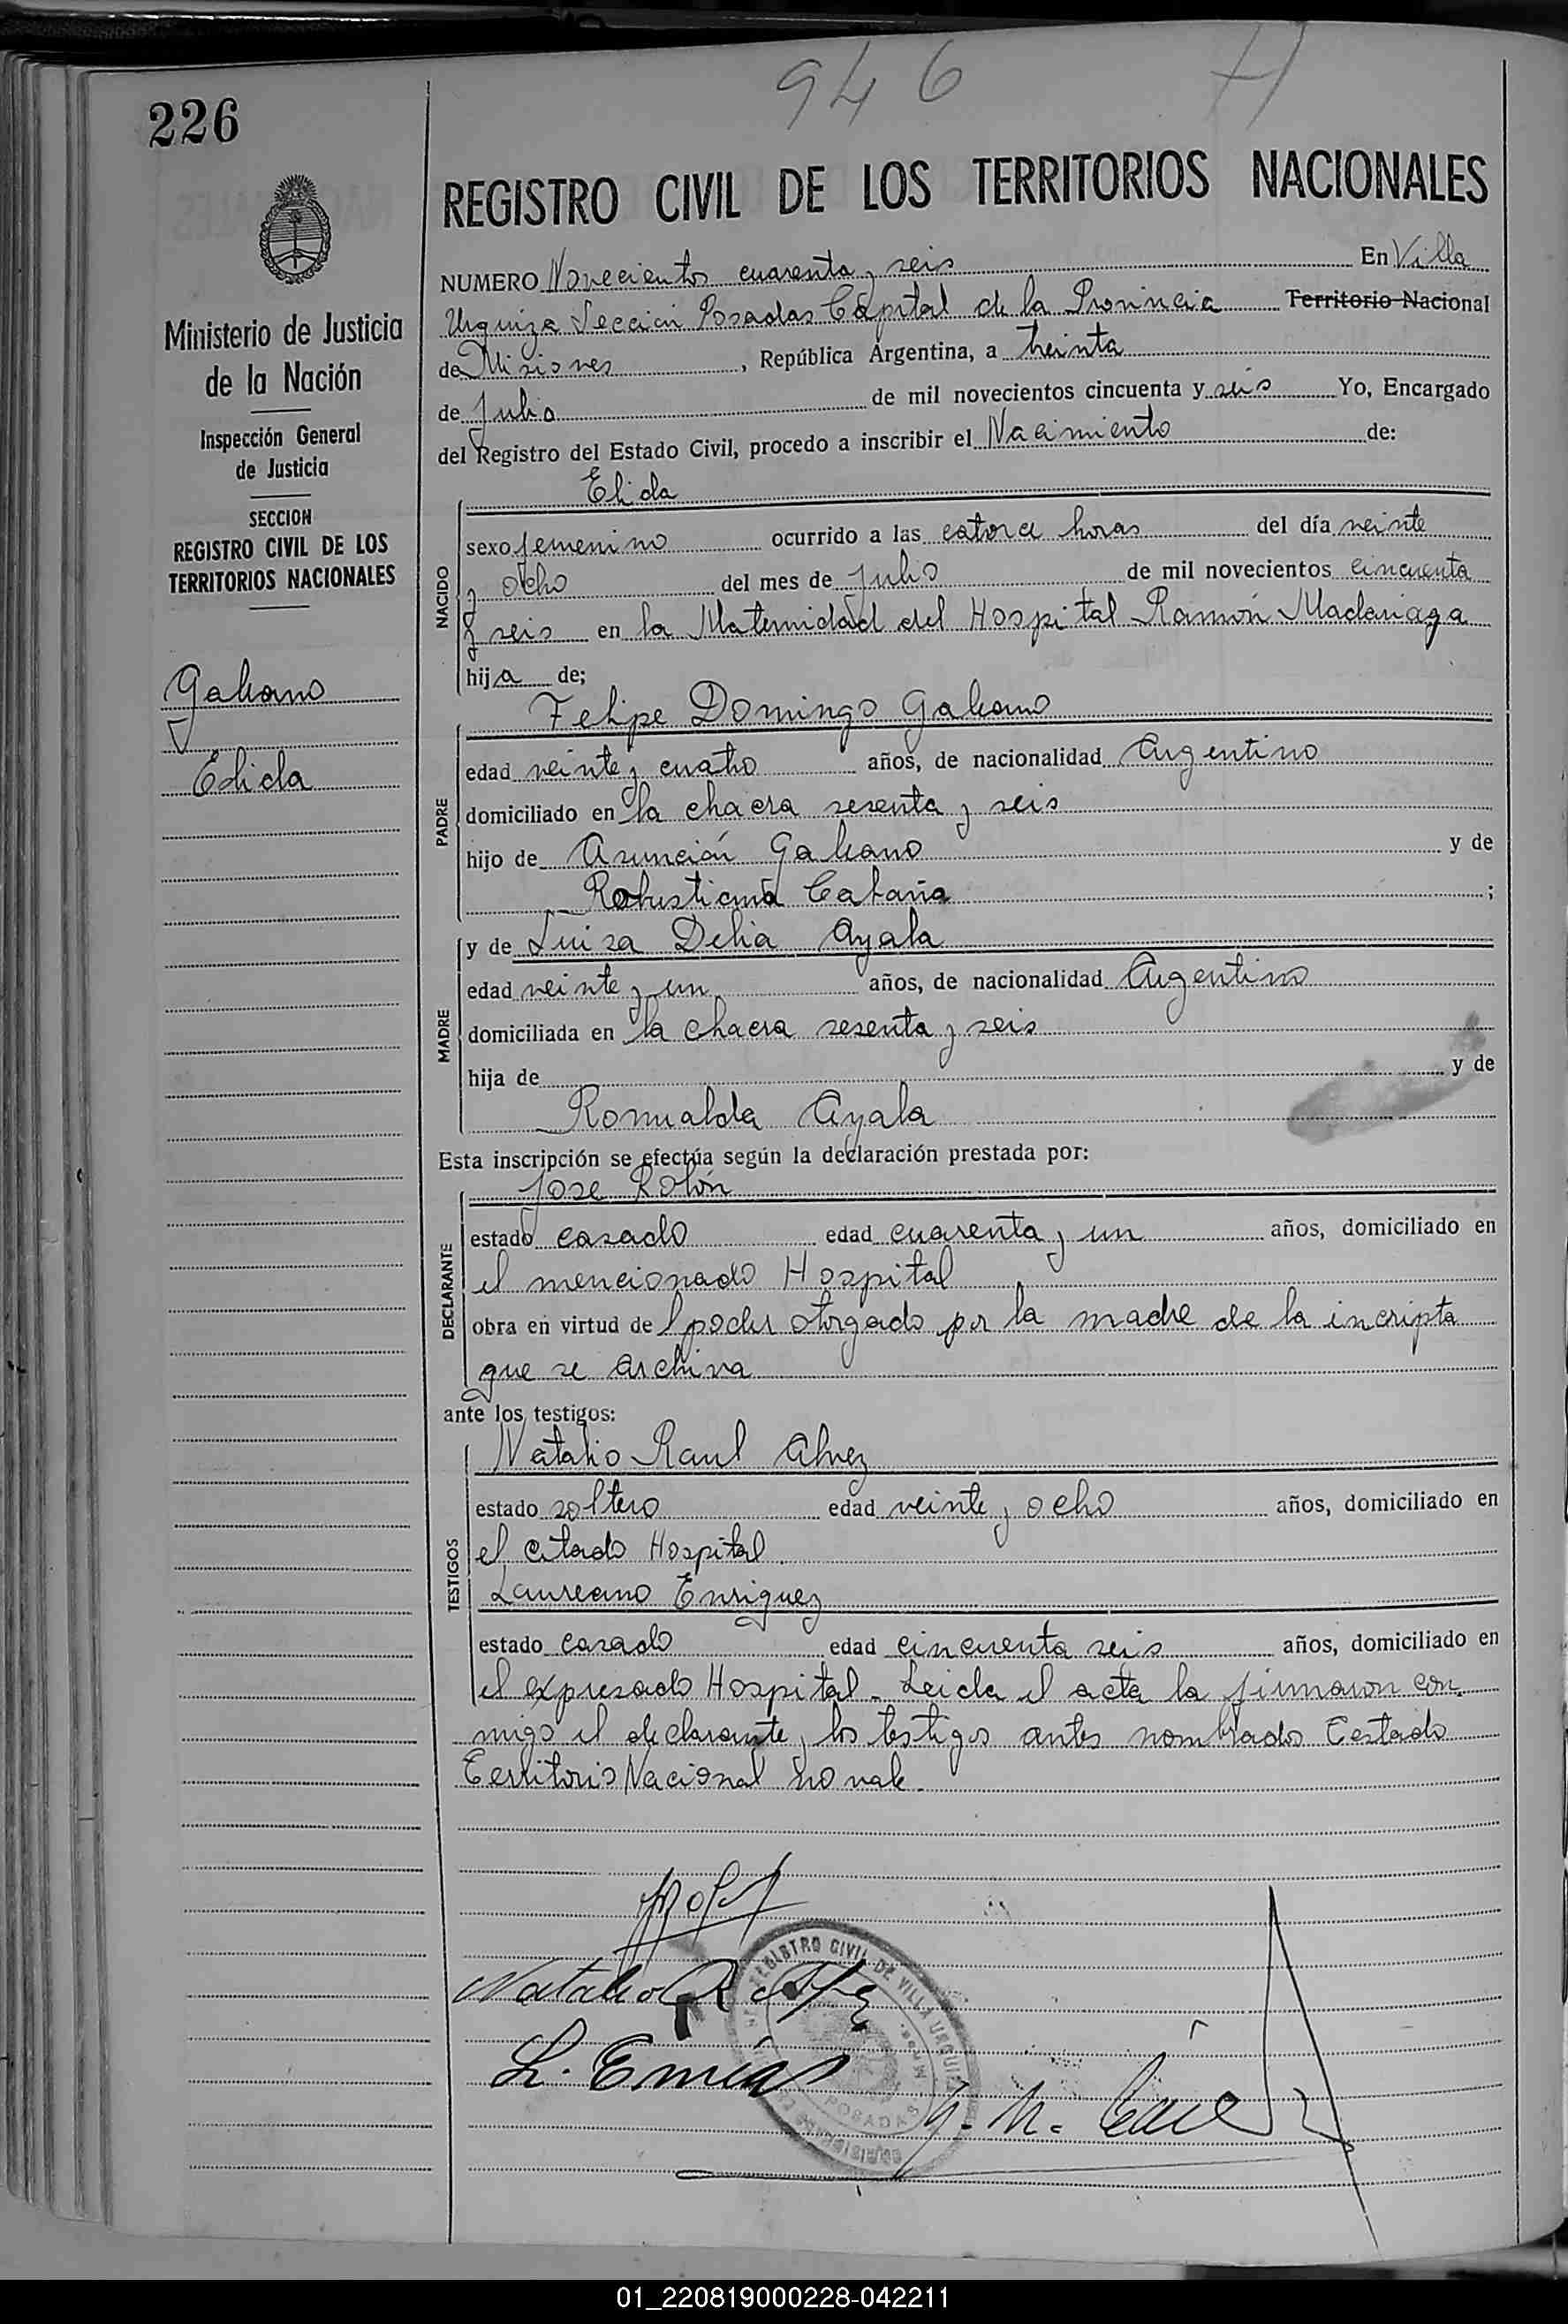 946
226
REGISTRO CIVIL DE LOS TERRITORIOS NACIONALES
NUMERO Novecientos cuarenta y seis En Villa
Urquiza Seccion Posadas Capital de la Provincia Territorio Nacional
de Misiones, República Argentina, a treinta
de Julio de mil novecientos cincuenta y seis Yo, Encargado
del Registro del Estado Civil, procedo a inscribir el Nacimiento de:
Ministerio de Justicia
de la Nación
Inspección General
de Justicia
SECCION
REGISTRO CIVIL DE LOS
TERRITORIOS NACIONALES
Galeano
Elida
NACIDO
Elida
sexo femenino ocurrido a las catorce horas del día veinte
y ocho del mes de Julio de mil novecientos cincuenta
y seis en la Maternidad del Hospital Ramón Madariaga
hija de;
PADRE
Felipe Domingo Galeano
edad veinte y cuatro años, de nacionalidad Argentino
domiciliado en la chacra sesenta y seis
hijo de Asunción Galeano y de
Robustiana ;
MADRE
y de Luisa Delia Ayala
edad veinte y un años, de nacionalidad Argentino
domiciliada en la chacra sesenta y seis
hija de y de
Romualda Ayala
Esta inscripción se efectúa según la declaración prestada por:
DECLARANTE
Jose Rolón
estado casado edad cuarenta y un años, domiciliado en
el mencionado Hospital
obra en virtud del poder otorgado por la madre de la incripta
que se archiva
ante los testigos:
TESTIGOS
Natalio Raul Alvez
estado soltero edad veinte y ocho años, domiciliado en
el citado Hospital
Laureano Enriquez
estado casado edad cincuenta seis años, domiciliado en
el expresado Hospital - Leida el acta la firmaron con
migo el declarante y los testigos antes nombrados Testado
Territorio Nacional no vale.
Natalio R
L.
REGISTRO CIVIL DE VILLA URQUIZA
POSADAS
01_220819000228-042211